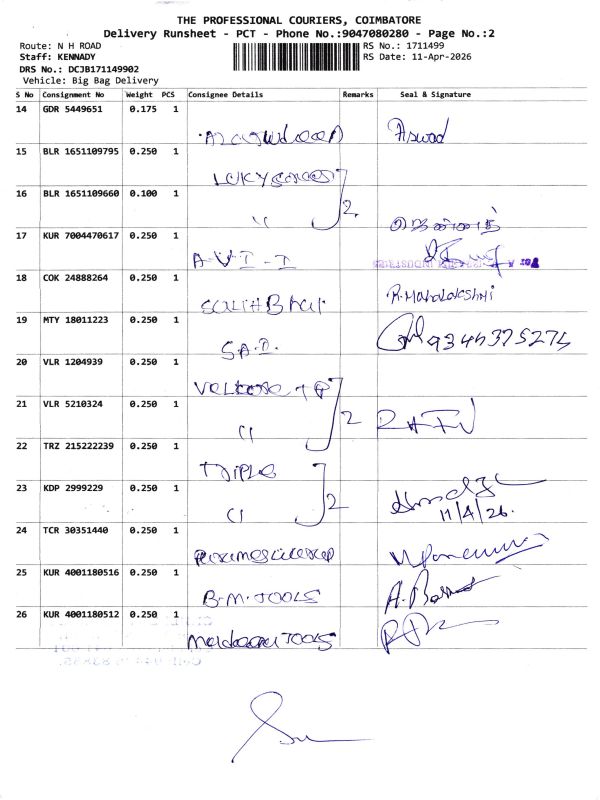 THE PROFESSIONAL COURIERS, COIMBATORE
Delivery Runsheet - PCT - Phone No.:9047080280 - Page No.:2
Route: N H ROAD
RS No.: 1711499
Staff: KENNADY
RS Date: 11-Apr-2026
DRS No.: DCJB171149902
Vehicle: Big Bag Delivery
S No Consignment No Weight PCS Consignee Details Remarks Seal & Signature
14 GDR 5449651 0.175 1 Aswad
15 BLR 1651109795 0.250 1
16 BLR 1651109660 0.100 1 " 2
17 KUR 7004470617 0.250 1 A.V.I-I
18 COK 24888264 0.250 1 R.Mahalakshmi
19 MTY 18011223 0.250 1 9344375275
20 VLR 1204939 0.250 1
21 VLR 5210324 0.250 1 " 2
22 TRZ 215222239 0.250 1
23 KDP 2999229 0.250 1 " 2
11/4/26.
24 TCR 30351440 0.250 1
25 KUR 4001180516 0.250 1 B.M.TOOLS
26 KUR 4001180512 0.250 1 TOOLS